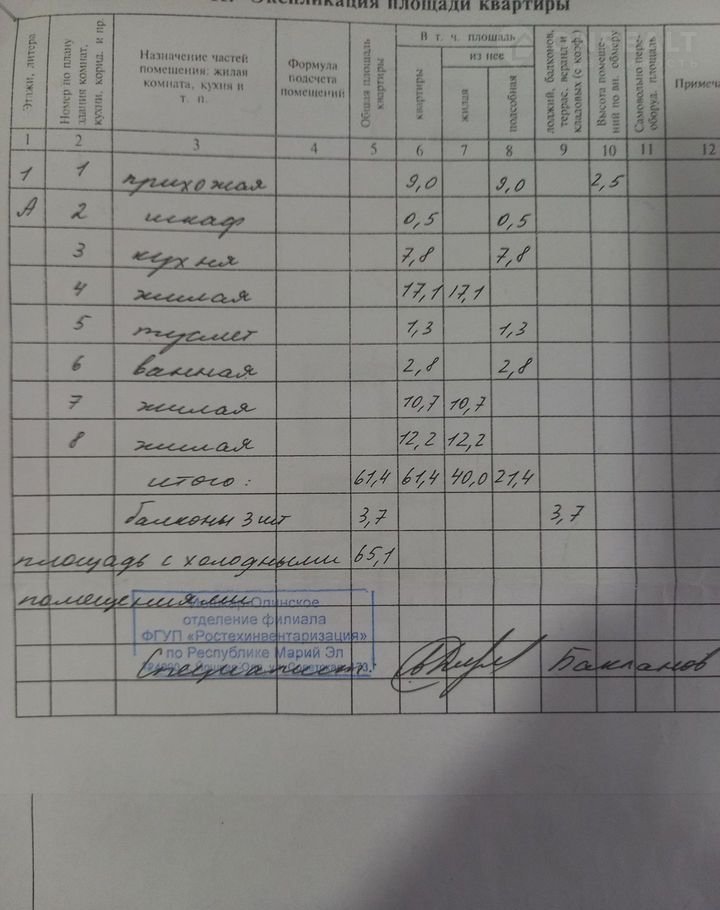 Экспликация площади квартиры
Этажи, литера
Номер по плану здания комнат, кухни, корид. и пр.
Назначение частей помещения: жилая комната, кухня и т. п.
Формула подсчета помещений
Общая площадь квартиры
В т. ч. площадь
из нее
квартиры
жилая
подсобная
лоджий, балконов, террас, веранд и кладовых (с коэф.)
Высота помещений по вн. обмеру
Самовольно переоборуд. площадь
Примеча
1 2 3 4 5 6 7 8 9 10 11 12
1 1 прихожая 9,0 9,0 2,5
А 2 шкаф 0,5 0,5
3 кухня 7,8 7,8
4 жилая 17,1 17,1
5 туалет 1,3 1,3
6 ванная 2,8 2,8
7 жилая 10,7 10,7
8 жилая 12,2 12,2
итого: 61,4 61,4 40,0 21,4
балконы 3 шт 3,7 3,7
площадь с холодными 65,1
помещениями
отделение филиала
ФГУП «Ростехинвентаризация»
по Республике Марий Эл
Специалист Бакланов